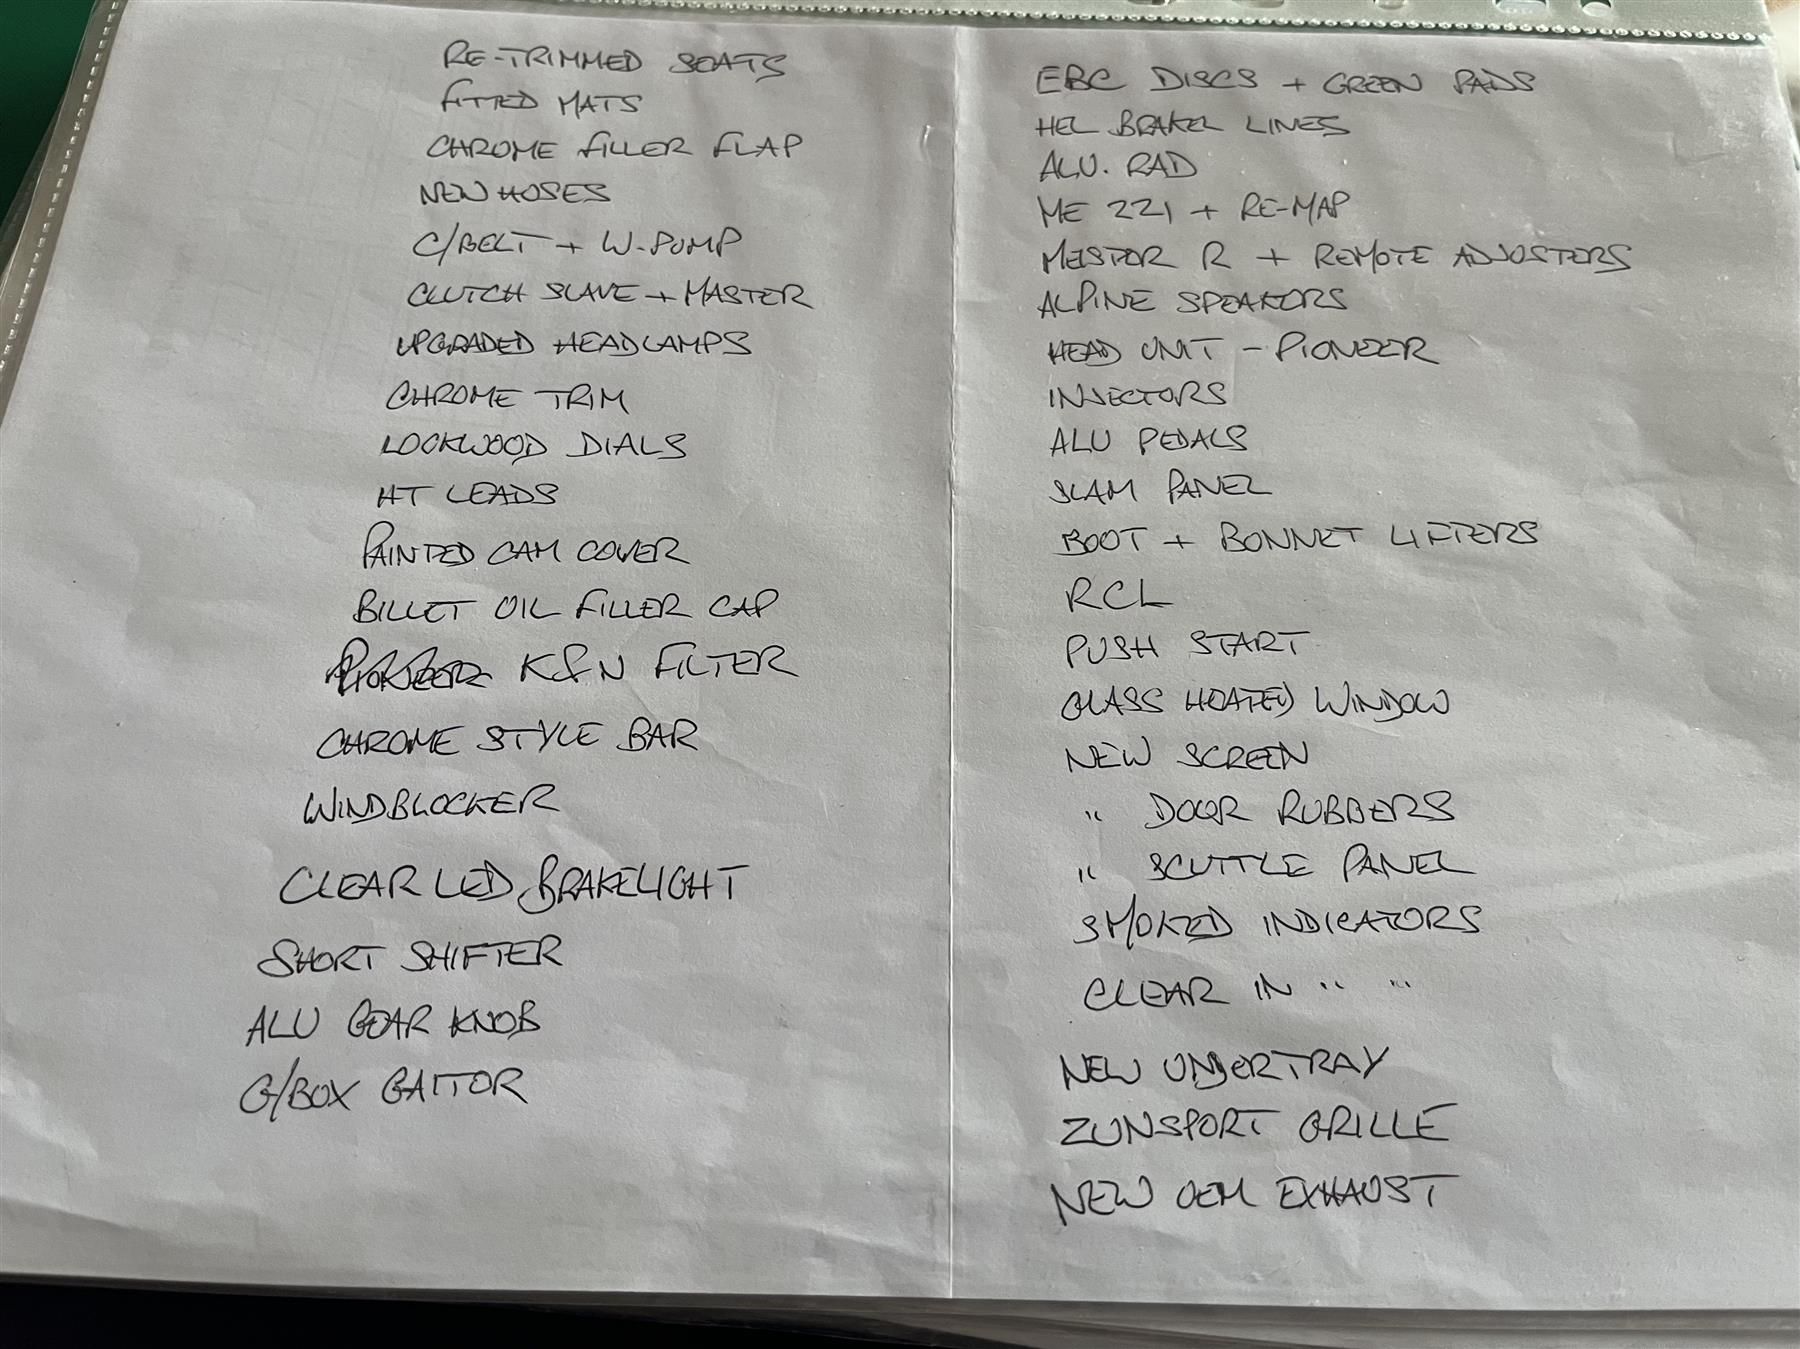 RE-TRIMMED SEATS
FITTED MATS
CHROME FILLER FLAP
NEW HOSES
C/BELT + W-PUMP
CLUTCH SLAVE + MASTER
UPGRADED HEADLAMPS
CHROME TRIM
LOCKWOOD DIALS
HT LEADS
PAINTED CAM COVER
BILLET OIL FILLER CAP
K&N FILTER
CHROME STYLE BAR
WINDBLOCKER
CLEAR LED BRAKELIGHT
SHORT SHIFTER
ALU GEAR KNOB
G/BOX GAITOR
EBC DISCS + GREEN PADS
HEL BRAKEL LINES
ALU. RAD
ME 221 + RE-MAP
MEISTOR R + REMOTE ADJUSTERS
ALPINE SPEAKERS
HEAD UNIT - PIONEER
INJECTORS
ALU PEDALS
SLAM PANEL
BOOT + BONNET LIFTERS
RCL
PUSH START
GLASS HEATED WINDOW
NEW SCREEN
" DOOR RUBBERS
" SCUTTLE PANEL
SMOKED INDICATORS
CLEAR IN " "
NEW UNDERTRAY
ZUNSPORT GRILLE
NEW OEM EXHAUST